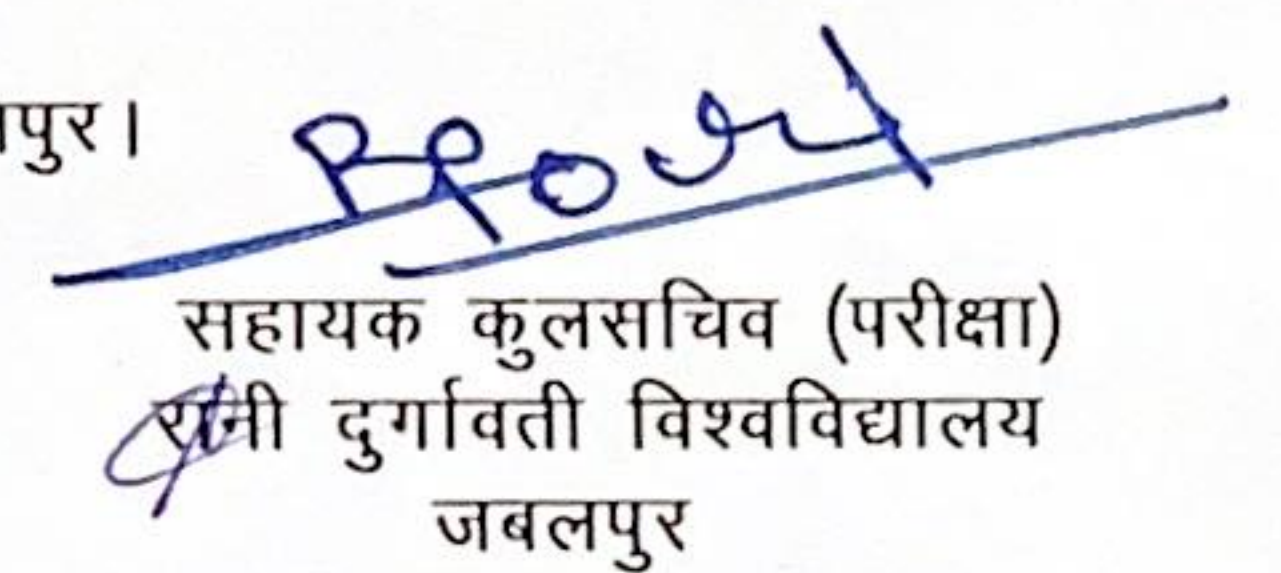 पुर।
सहायक कुलसचिव (परीक्षा)
रानी दुर्गावती विश्वविद्यालय
जबलपुर